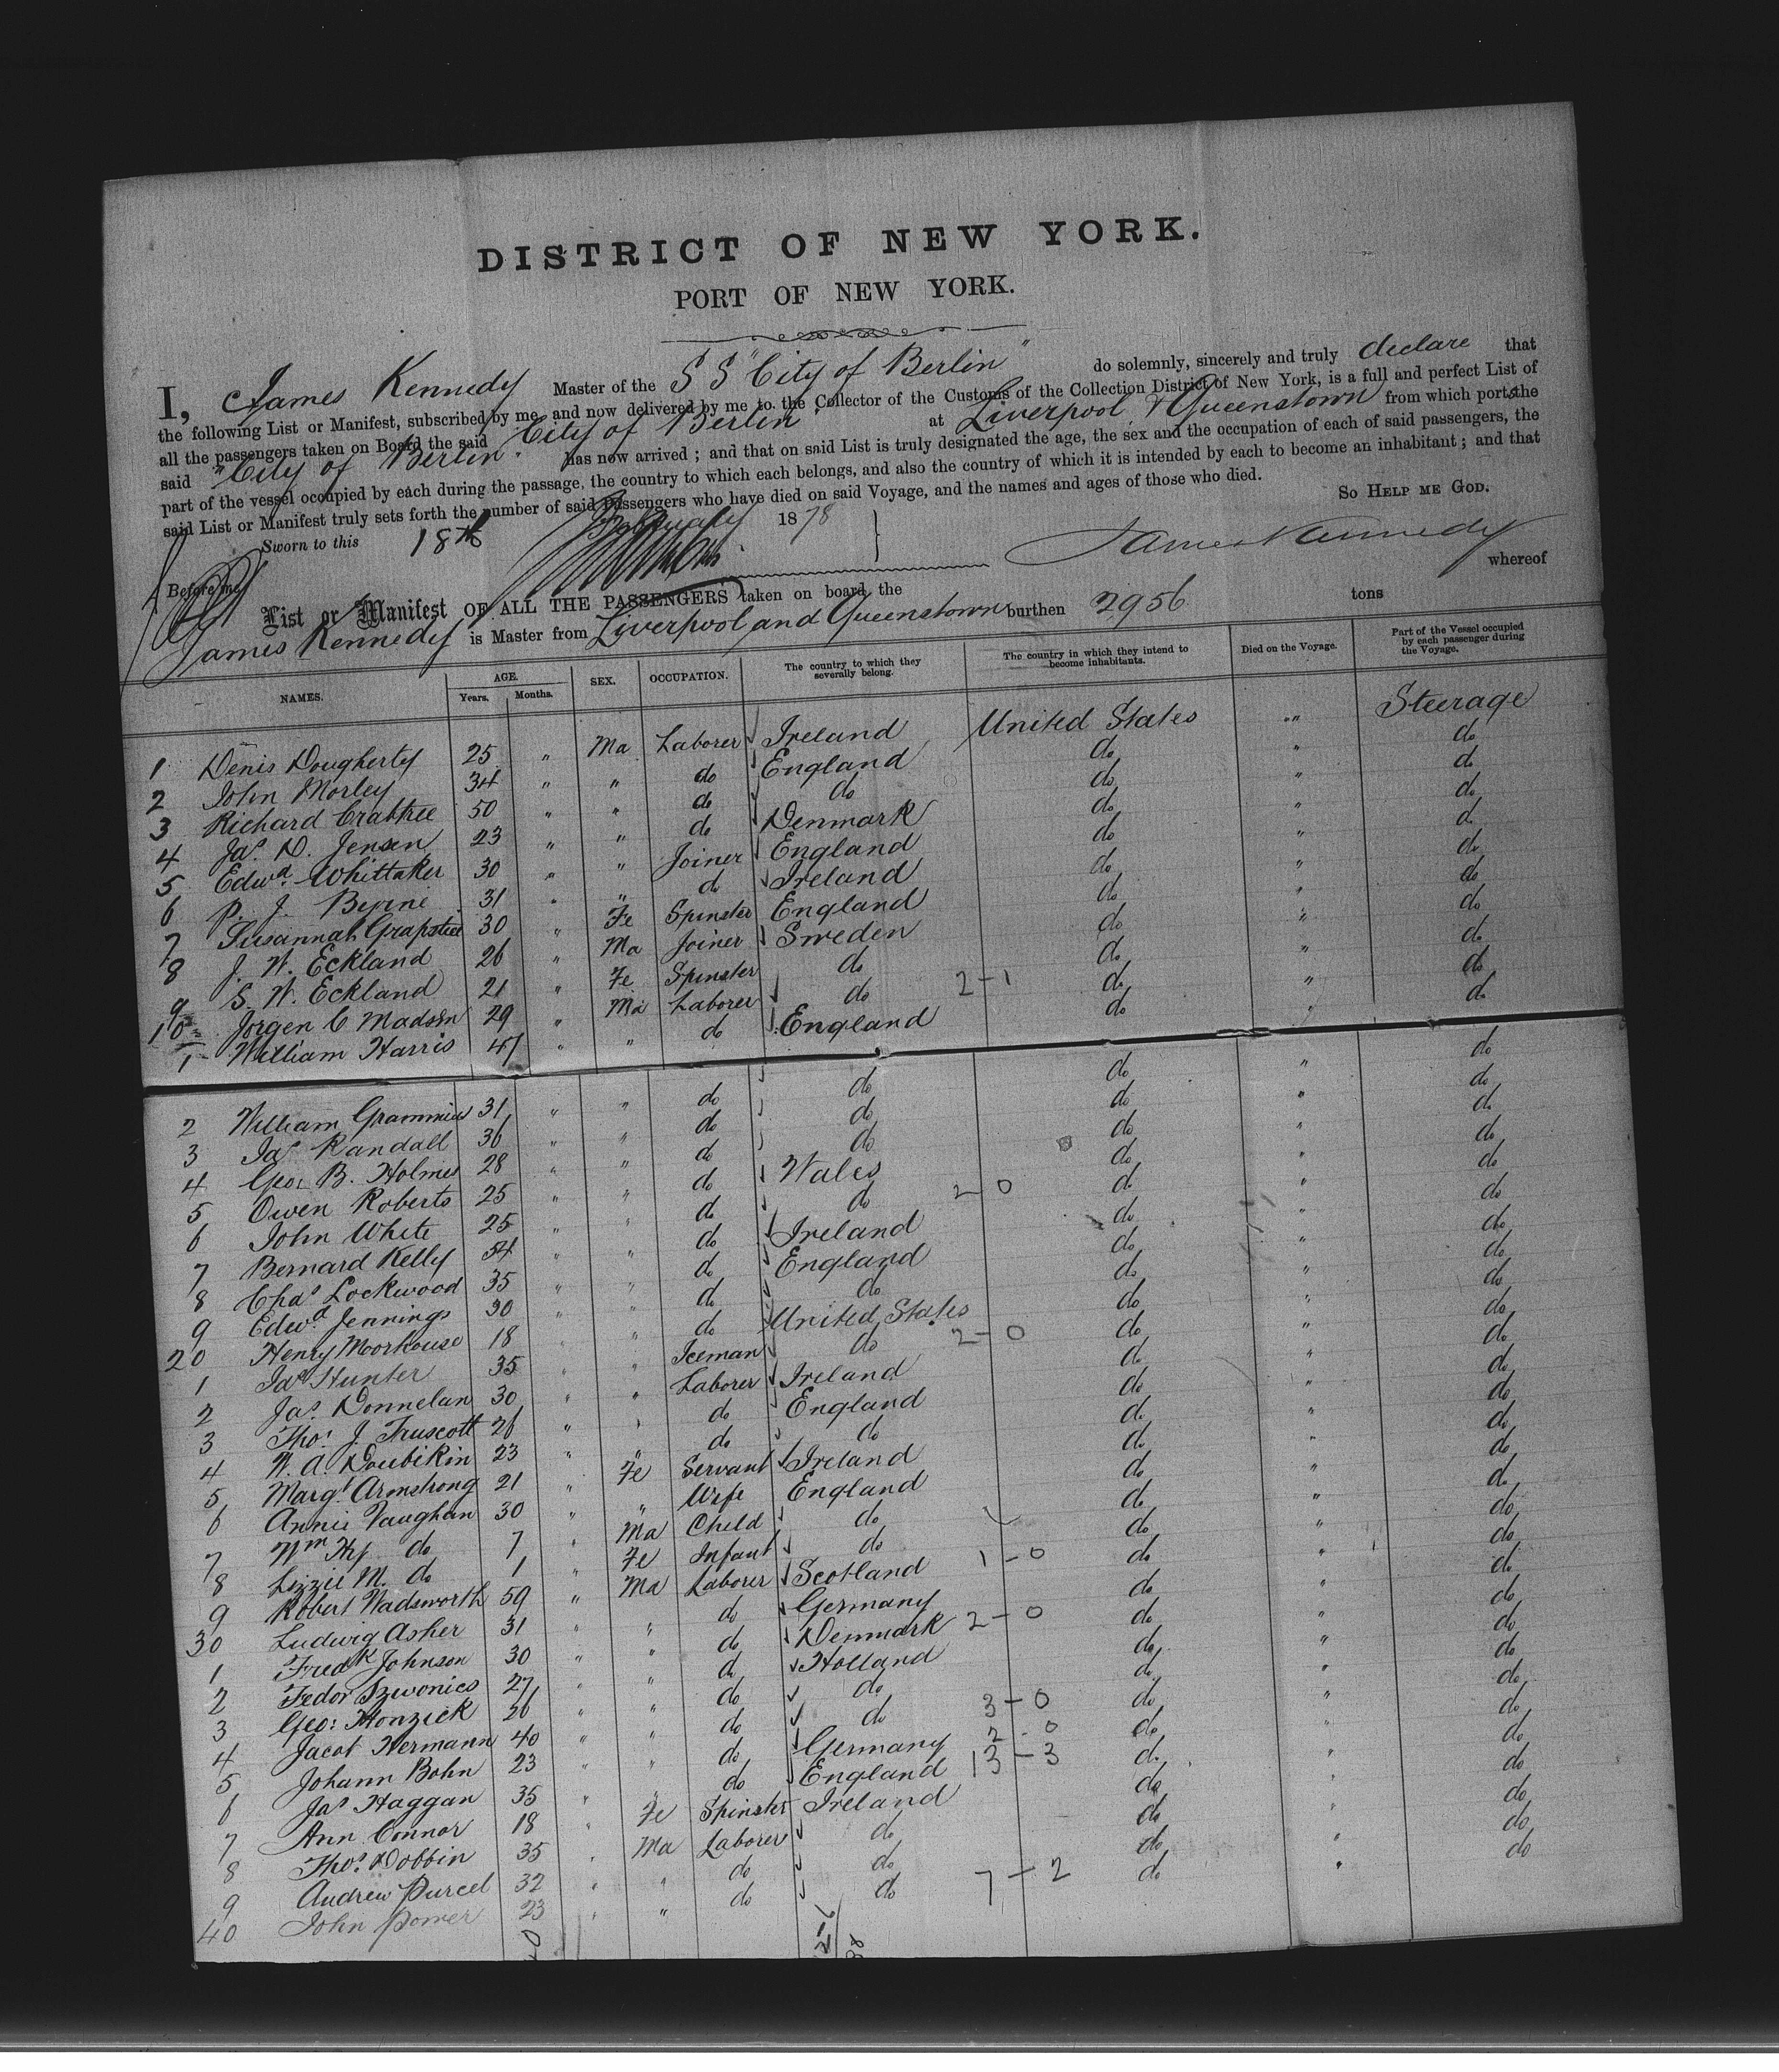 DISTRICT OF NEW YORK.
PORT OF NEW YORK.
I, James Kennedy Master of the SS "City of Berlin" do solemnly, sincerely and truly declare that
the following List or Manifest, subscribed by me, and now delivered by me to the Collector of the Customs of the Collection District of New York, is a full and perfect List of
all the passengers taken on Board the said "City of Berlin" at Liverpool & Queenstown from which ports the
said "City of Berlin" has now arrived; and that on said List is truly designated the age, the sex and the occupation of each of said passengers, the
part of the vessel occupied by each during the passage, the country to which each belongs, and also the country of which it is intended by each to become an inhabitant; and that
said List or Manifest truly sets forth the number of said Passengers who have died on said Voyage, and the names and ages of those who died.
So Help me God.
Sworn to this 18th February 1878
James Kennedy
Before me
whereof
List or Manifest OF ALL THE PASSENGERS taken on board the
James Kennedy is Master from Liverpool and Queenstown burthen 2956 tons
NAMES. AGE. Years. Months. SEX. OCCUPATION. The country to which they severally belong. The country in which they intend to become inhabitants. Died on the Voyage. Part of the Vessel occupied by each passenger during the Voyage.
1 Denis Dougherty 25 " Ma Laborer Ireland United States " Steerage
2 John Morley 34 " " do England do " do
3 Richard Crabtree 50 " " do do do " do
4 Jas. D. Jensen 23 " " do Denmark do " do
5 Edwd. Whittaker 30 " " Joiner England do " do
6 P. J. Byrne 31 " " do Ireland do " do
7 Susannah 30 " Fe Spinster England do " do
8 J. W. Eckland 26 " Ma Joiner Sweden do " do
9 S. W. Eckland 21 " Fe Spinster do do " do
10 Jorgen C Madsen 29 " Ma Laborer do 2-1 do " do
1 William Harris 47 " " do England do " do
2 William 31 " " do do do " do
3 Jas Randall 36 " " do do do " do
4 Geo. B. Holmes 28 " " do do do " do
5 Owen Roberts 25 " " do Wales do " do
6 John White 25 " " do do 2-0 do " do
7 Bernard Kelly 54 " " do Ireland do " do
8 Chas Lockwood 35 " " do England do " do
9 Edwd. Jennings 30 " " do do do " do
20 Henry Moorhouse 18 " " do United States do " do
1 Jas Hunter 35 " " Iceman do 2-0 do " do
2 Jas. Donnelan 30 " " Laborer Ireland do " do
3 Thos. J. Truscott 26 " " do England do " do
4 W. A. Doubikin 23 " " do do do " do
5 Margt. Armstrong 21 " Fe Servant Ireland do " do
6 Annie Vaughan 30 " " Wife England do " do
7 Wm Hy do 7 " Ma Child do do " do
8 Lizzie M. do 1 " Fe Infant do do " do
9 Robert Wadsworth 59 " Ma Laborer Scotland 1-0 do " do
30 Ludwig Asher 31 " " do Germany do " do
1 Fredk Johnson 30 " " do Denmark 2-0 do " do
2 Fedor Szwonics 27 " " do Holland do " do
3 Geo: Honzick 26 " " do do do " do
4 Jacob Hermann 40 " " do do 3-0 do " do
5 Johann Bohn 23 " " do Germany 2-0 do " do
6 Jas Haggan 35 " " do England 13-3 do " do
7 Ann Connor 18 " Fe Spinster Ireland do " do
8 Thos. Dobbin 35 " Ma Laborer do do " do
9 Andrew Purcel 32 " " do do do " do
40 John Power 23 " " do do 7-2 do " do